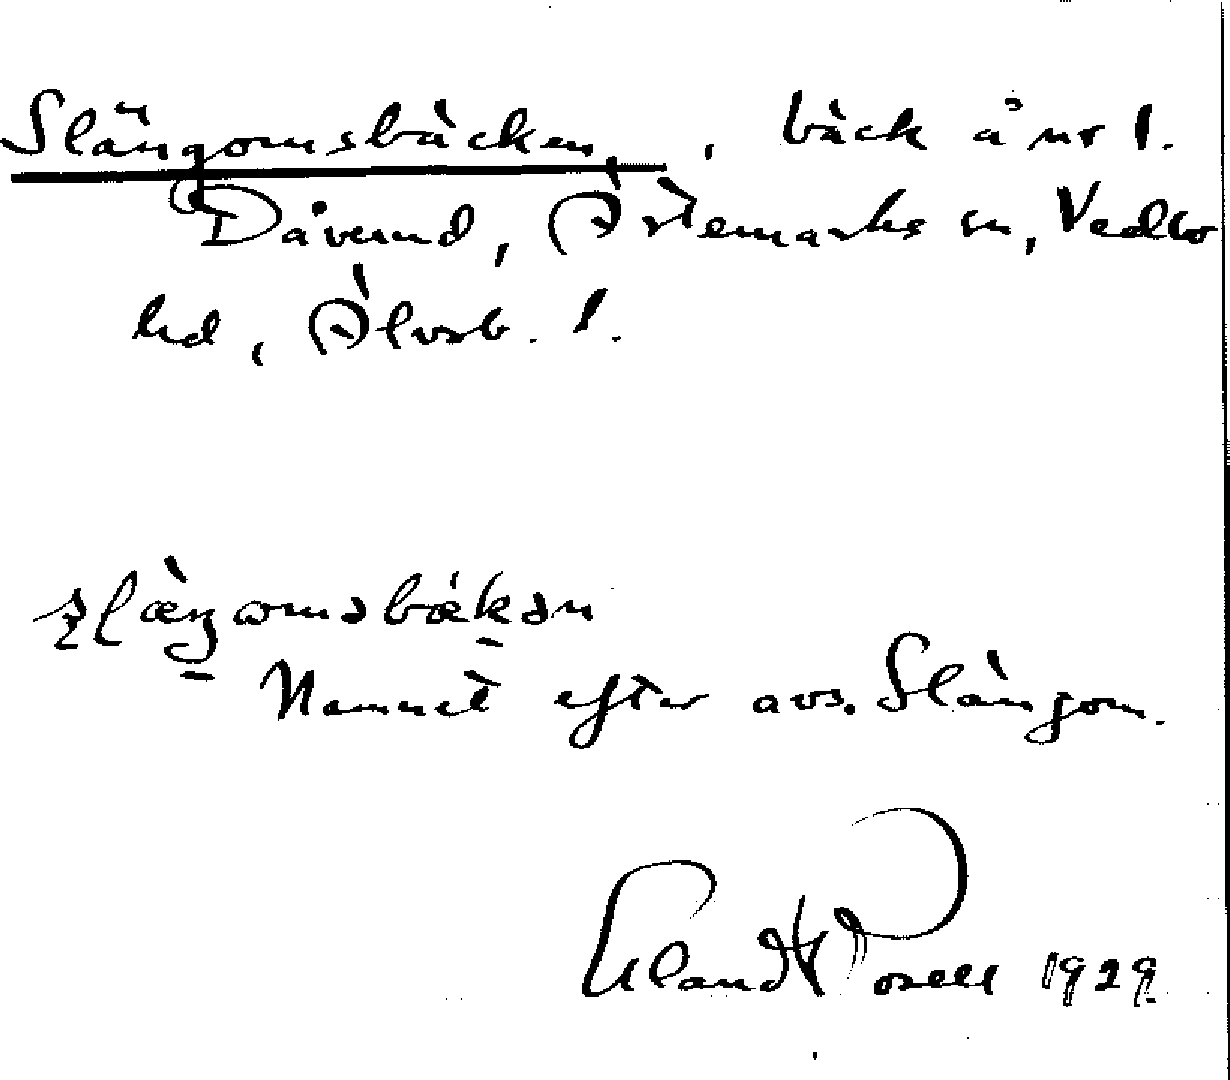 Slängomsbäcken, bäck å nr 1.
Dåverud, Ärtemarks sn, Vedbo
hd, Älvsb. l.
ʂlæ̀ŋomsbækən
Namnet efter avs. Slängom.
Erland Rosell 1929